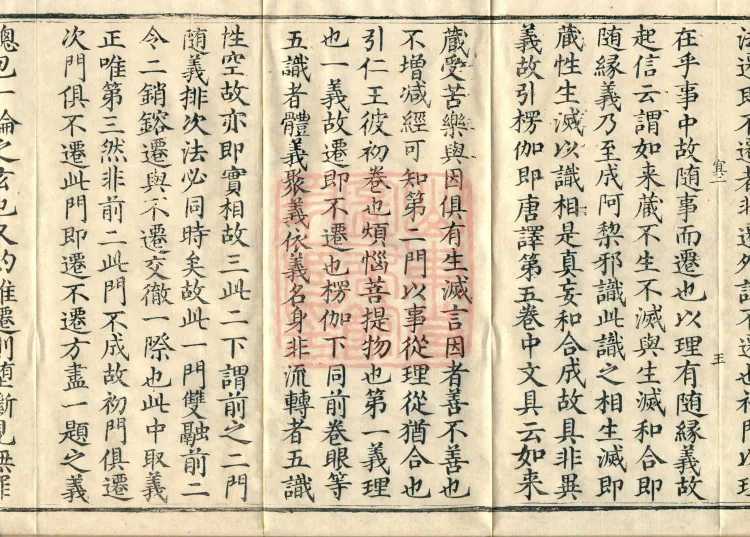 法遷即不遷者非遷外說不遷也初門以理
宜二
王
在乎事中故随事而遷也以理有随縁義故
起信云謂如来蔵不生不滅與生滅和合即
随縁義乃至成阿黎邪識此識之相生滅即
蔵性生滅以識相是真妄和合成故具非異
義故引楞伽即唐譯第五卷中文具云如来
蔵受苦樂與因俱有生滅言因者善不善也
不增减經可知第二門以事從理從猶合也
引仁王彼初卷也煩惱菩提物也第一義理
也一義故遷即不遷也楞伽下同前卷眼等
五識者體義聚義依義名身非流轉者五識
性空故亦即實相故三此二下謂前之二門
随義排次法必同時矣故此一門雙融前二
令二銷鎔遷與不遷交徹一際也此中取義
正唯第三然非前二此門不成故初門俱遷
次門俱不遷此門即遷不遷方盡一題之義
總包一論之玄也又約唯遷則墮斷見無罪